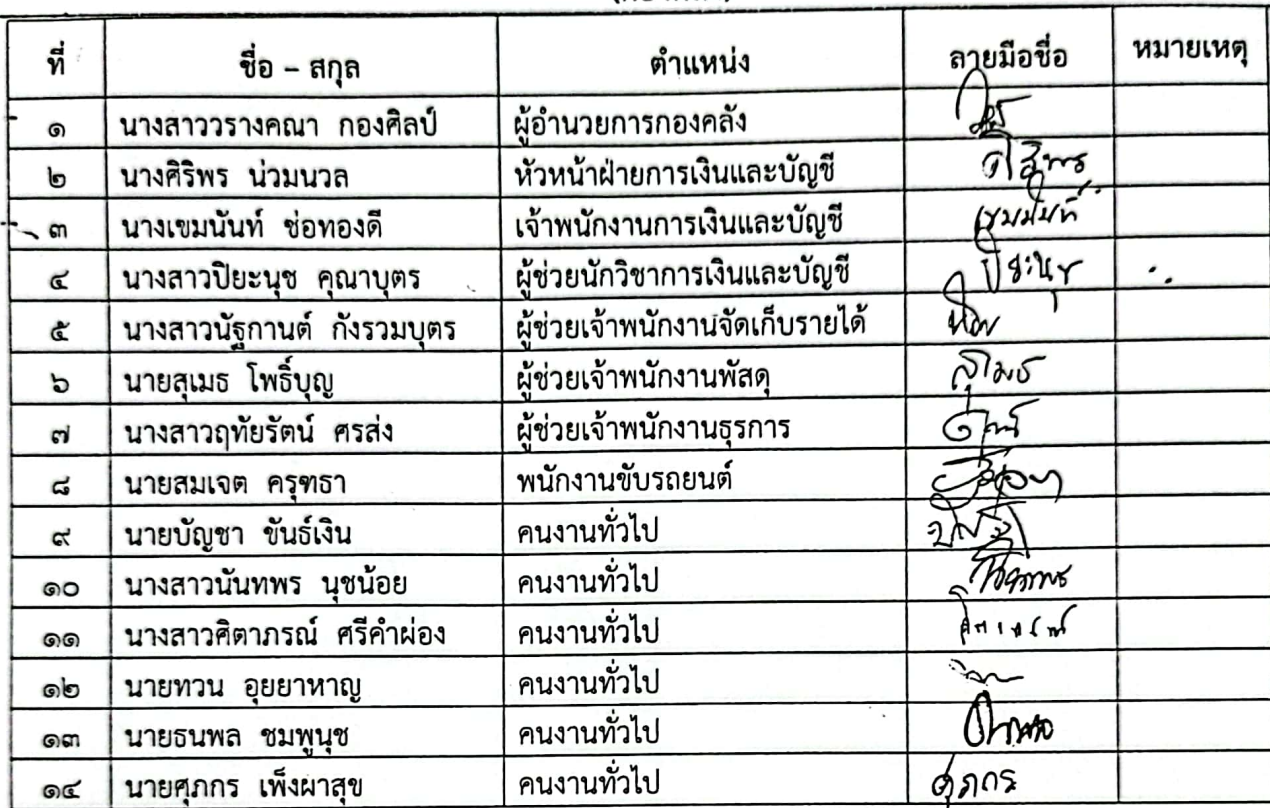 ที่ ชื่อ – สกุล ตำแหน่ง ลายมือชื่อ หมายเหตุ
๑ นางสาววรางคณา กองศิลป์ ผู้อำนวยการกองคลัง
๒ นางศิริพร น่วมนวล หัวหน้าฝ่ายการเงินและบัญชี ศิริพร
๓ นางเขมนันท์ ช่อทองดี เจ้าพนักงานการเงินและบัญชี เขมนันท์
๔ นางสาวปิยะนุช คุณาบุตร ผู้ช่วยนักวิชาการเงินและบัญชี ปิยะนุช
๕ นางสาวนัฐกานต์ กังรวมบุตร ผู้ช่วยเจ้าพนักงานจัดเก็บรายได้
๖ นายสุเมธ โพธิ์บุญ ผู้ช่วยเจ้าพนักงานพัสดุ สุเมธ
๗ นางสาวฤทัยรัตน์ ศรส่ง ผู้ช่วยเจ้าพนักงานธุรการ
๘ นายสมเจต ครุฑธา พนักงานขับรถยนต์
๙ นายบัญชา ขันธ์เงิน คนงานทั่วไป
๑๐ นางสาวนันทพร นุชน้อย คนงานทั่วไป
๑๑ นางสาวศิตาภรณ์ ศรีคำผ่อง คนงานทั่วไป
๑๒ นายทวน อุยยาหาญ คนงานทั่วไป
๑๓ นายธนพล ชมพูนุช คนงานทั่วไป
๑๔ นายศุภกร เพ็งผาสุข คนงานทั่วไป ศุภกร